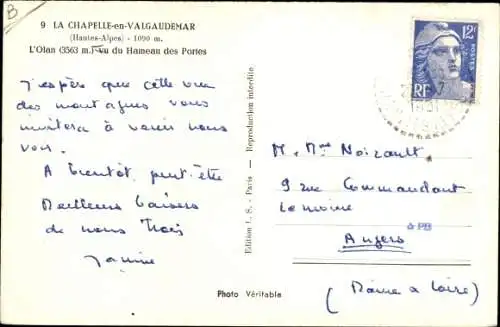 B
9 LA CHAPELLE-en-VALGAUDEMAR
(Hautes-Alpes) - 1090 m.
L'Olan (3563 m.) vu du Hameau des Portes
J'espère que cette vue
des montagnes vous
invitera à venir nous
voir.
A bientôt peut-être
Meilleurs baisers
de nous trois
Janine
Edition L. S. - Paris — Reproduction interdite
Photo Véritable
12F
POSTES
RF
M. Mme Noizault
9 rue Commandant
Lemoine
Angers
(Maine & Loire)